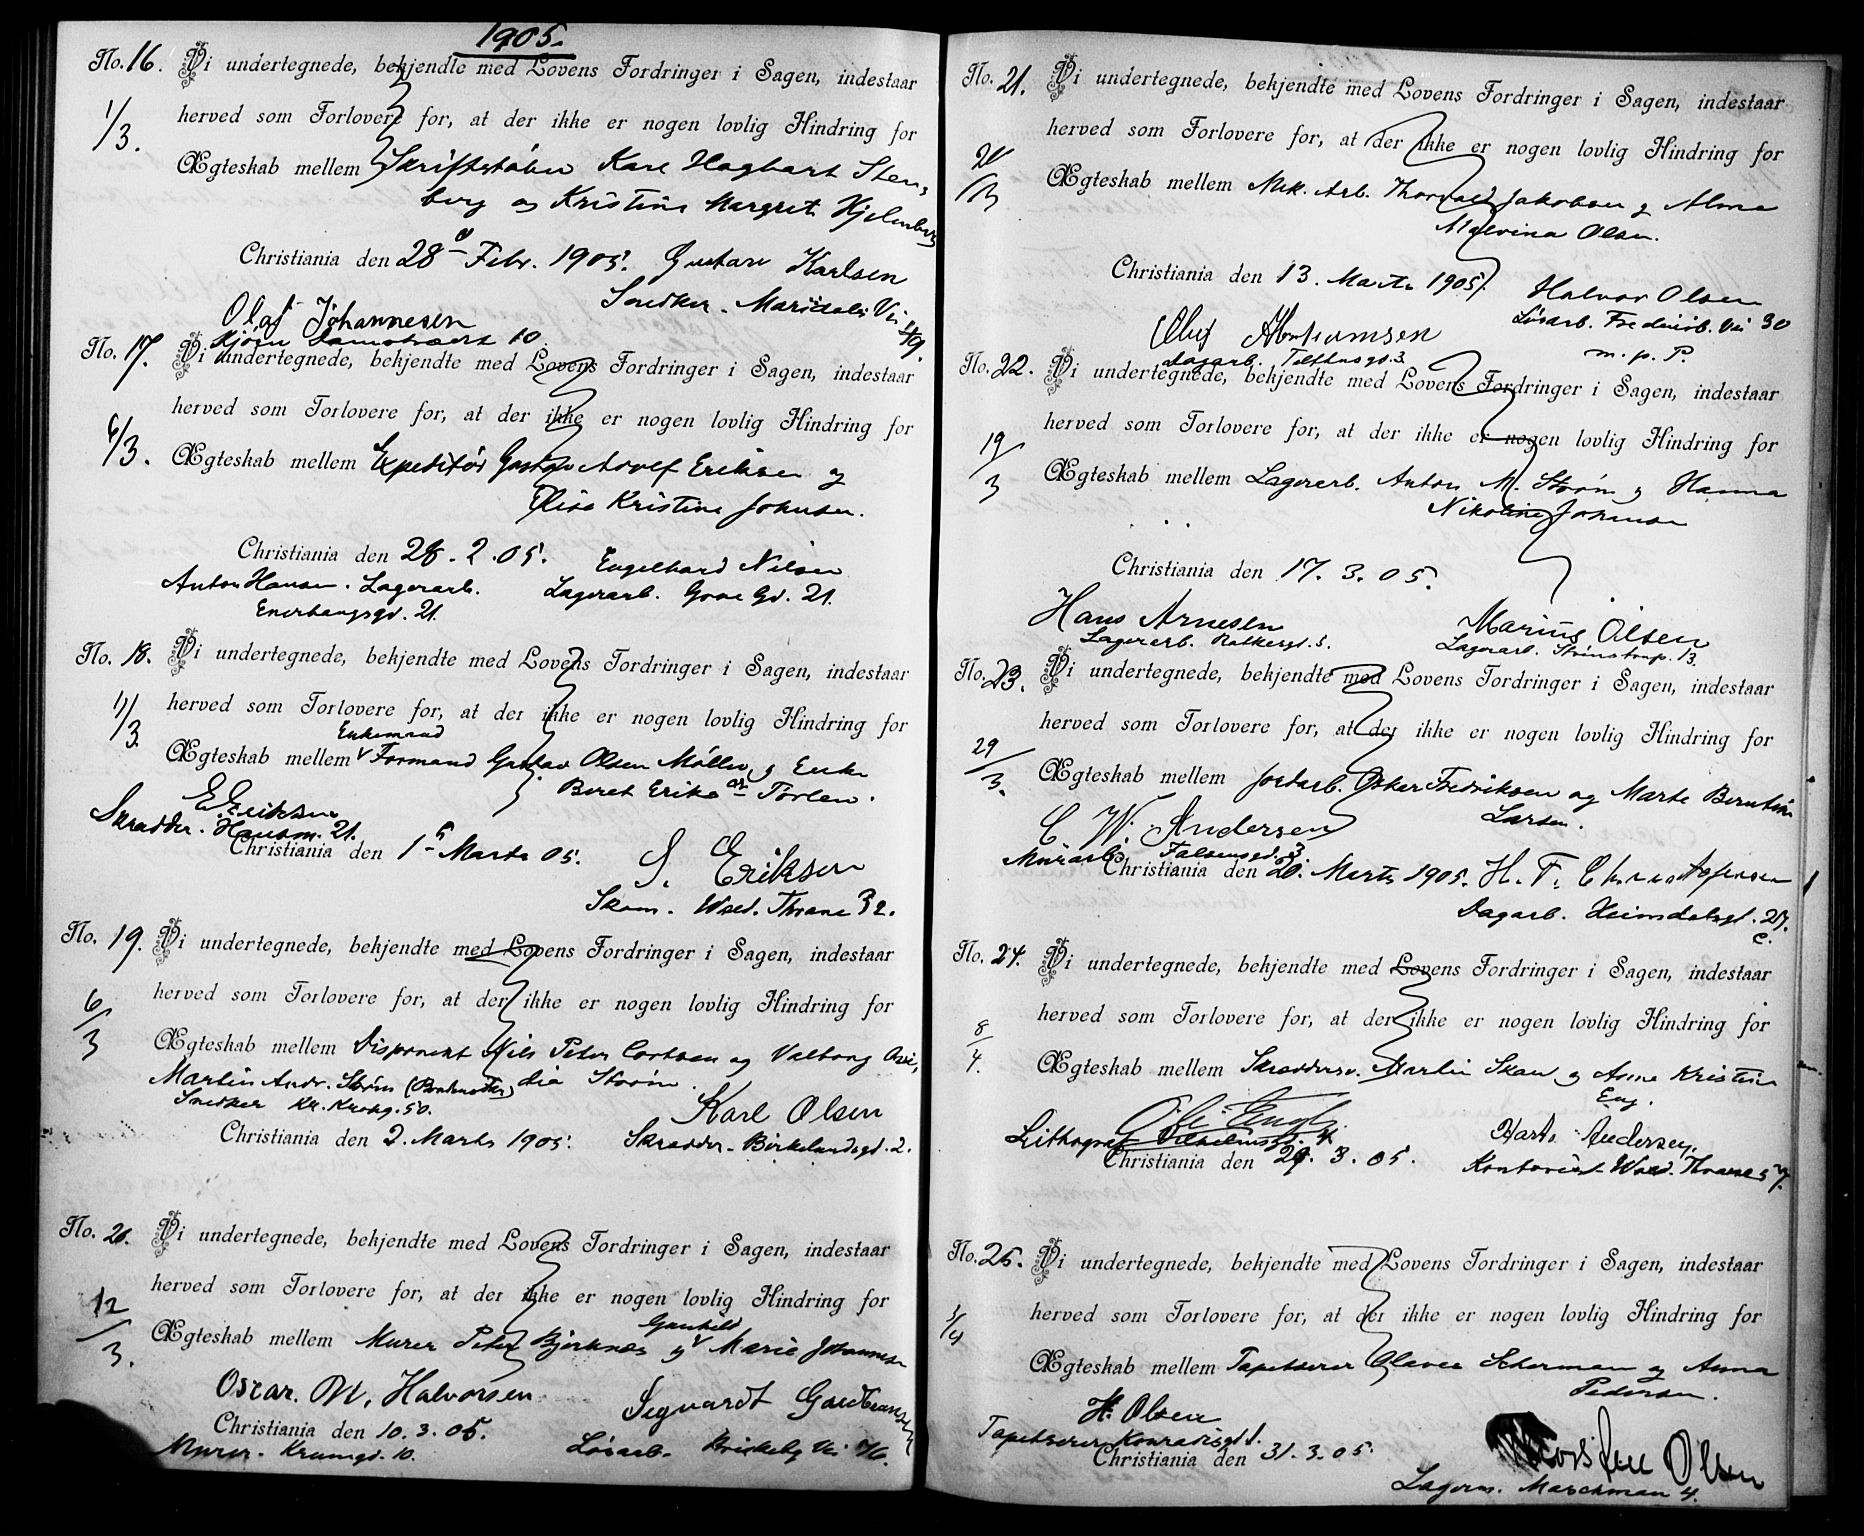 1905.
No. 16. Vi undertegnede, bekjendte med Lovens Fordringer i Sagen, indestaar
1/3. herved som Forlovere for, at der ikke er nogen lovlig Hindring for
Ægteskab mellem Skriftstøber Karl Hagbart Sten-
berg og Kristine Margret Hjelmberg
Christiania den 28d Febr. 1905. Gustav Karlsen
Snedker. Maridals Vei
Olaf Johannesen
10
No. 17. Vi undertegnede, bekjendte med Lovens Fordringer i Sagen, indestaar
6/3. herved som Forlovere for, at der ikke er nogen lovlig Hindring for
Ægteskab mellem Expeditør Gustav Adolf Eriksen og
Elise Kristine Johnsen.
Christiania den 28. 2. 05. Engelhard Nilsen
Anton Hansen. Lagerarb. Lagerarb. Gd. 21.
Enerhaugsgd. 21.
No. 18. Vi undertegnede, bekjendte med Lovens Fordringer i Sagen, indestaar
11/3. herved som Forlovere for, at der ikke er nogen lovlig Hindring for
Enkemand
Ægteskab mellem Formand Gustav Olsen Møller og Enke
Beret Eriksdr Torlen.
E. Eriksen
Skrædder. Hausm. 21.
Christiania den 1ste Marts 05. S. Eriksen
Skom. Wald. Thrane 32.
No. 19. Vi undertegnede, bekjendte med Lovens Fordringer i Sagen, indestaar
6/3 herved som Forlovere for, at der ikke er nogen lovlig Hindring for
Ægteskab mellem Disponent Nils Peter Cortsen og Valborg
Martin Andr. Strøm dia Strøm.
Snedker Kr. Krohg. 50. Karl Olsen
Christiania den 2. Marts 1905. Skrædder. Birkelundsgd. 2.
No. 20. Vi undertegnede, bekjendte med Lovens Fordringer i Sagen, indestaar
12/3. herved som Forlovere for, at der ikke er nogen lovlig Hindring for
Gunhild
Ægteskab mellem Murer Peter Bjerknæs og Marie Johannesen
Oscar. M. Halvorsen Sigvardt Guldbrandsen
Christiania den 10. 3. 05.
Murer. Krumgd. 10. Løsarb. Briskeby Vei
No. 21. Vi undertegnede, bekjendte med Lovens Fordringer i Sagen, indestaar
herved som Forlovere for, at der ikke er nogen lovlig Hindring for
Ægteskab mellem Mek. Arb. Thorvald Jakobsen og Alma
Malvina Olsen.
Christiania den 13. Marts 1905. Halvor Olsen
Løsarb. Frederiksb. Vei 30
Oluf Abrahamsen m. p. P.
Lagarb. Tilthusgd. 3.
No. 22. Vi undertegnede, bekjendte med Lovens Fordringer i Sagen, indestaar
19/3 herved som Forlovere for, at der ikke er nogen lovlig Hindring for
Ægteskab mellem Lagerarb. Anton M. Strøm og Hanna
Nikoline Johansen
Christiania den 17. 3. 05.
Hans Arnesen Marius Olsen
Lagerarb. Lagerarb. 13.
No. 23. Vi undertegnede, bekjendte med Lovens Fordringer i Sagen, indestaar
29/3. herved som Forlovere for, at der ikke er nogen lovlig Hindring for
Ægteskab mellem Jordarb. Oskar Fredriksen og Marte Berntine
Larsen.
C. W. Andersen
Murarb. Falsensgd. 3.
Christiania den 20. Marts 1905. H. T.
Dagarb. Heimdalsgd. 27.
c.
No. 24. Vi undertegnede, bekjendte med Lovens Fordringer i Sagen, indestaar
8/4. herved som Forlovere for, at der ikke er nogen lovlig Hindring for
Ægteskab mellem Skræddersv. Martin Skau og Anna Kristine
Eng.
Lithograf Vilhelmsgd. 4. Andersen,
Christiania den 29. 3. 05. Kontorist Wald. Thranes 57.
No. 25. Vi undertegnede, bekjendte med Lovens Fordringer i Sagen, indestaar
herved som Forlovere for, at der ikke er nogen lovlig Hindring for
Ægteskab mellem Tapetserer Scherman og Anna
Pedersen.
H. Olsen
Tapetserer Konradisgd. 1.
Christiania den 31. 3. 05. Olsen
Lagerm. 4.